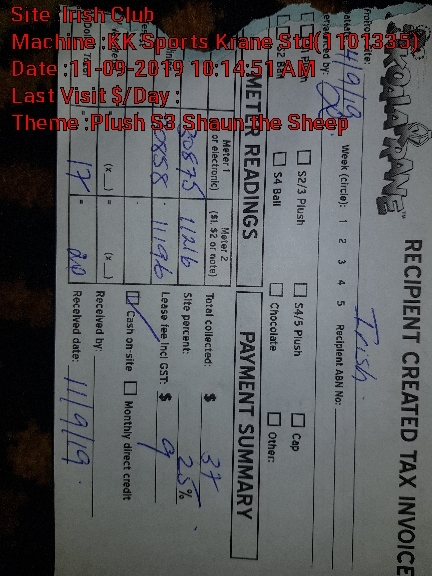 Site :Irish Club
Machine :KK Sports Krane Std(1101335)
Date :11-09-2019 10:14:51 AM
Last Visit $/Day :
Theme :Plush S3 Shaun the Sheep
KOALA KRANE
RECIPIENT CREATED TAX INVOICE
Irish
Week (circle): 1 2 3 4 5 Recipient ABN No:
S2/3 Plush S4/5 Plush Cap
S4 Ball Chocolate Other:
METER READINGS
Meter 1 Meter 2
or electronic) ($1, $2 or note)
30875 11216
30858 11196
(x ) (x )
17 = 20
PAYMENT SUMMARY
Total collected: $ 37
Site percent: 25%
Lease fee Incl GST: $ 9
Cash on-site Monthly direct credit
Received by:
Received date: 11/9/19